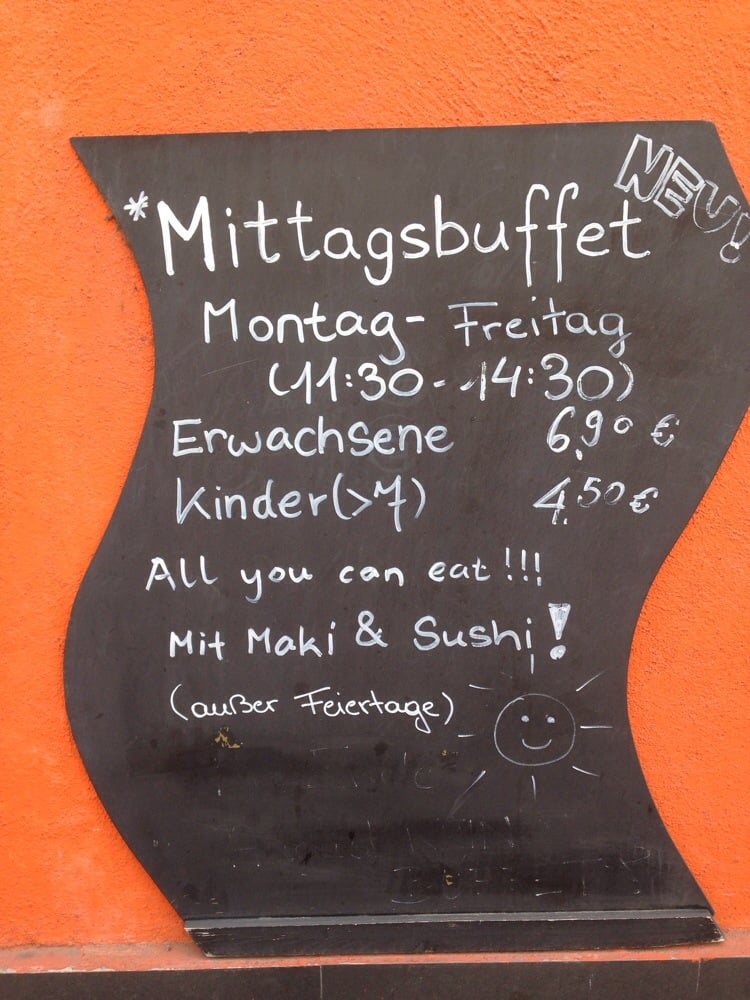 NEU!
*Mittagsbuffet
Montag - Freitag
(11:30 - 14:30)
Erwachsene 6,90 €
Kinder (>7) 4,50 €
All you can eat !!!
Mit Maki & Sushi!
(außer Feiertage)